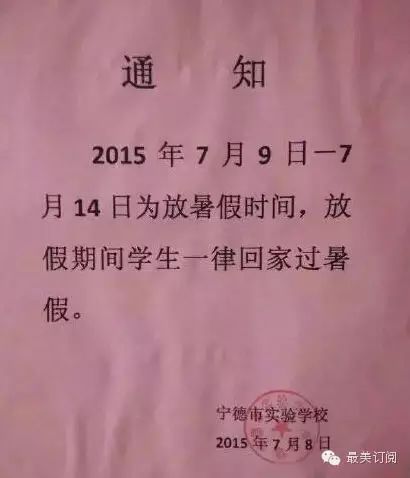 通 知
2015 年 7 月 9 日—7
月 14 日为放暑假时间，放
假期间学生一律回家过暑
假。
宁德市实验学校
2015 年 7 月 8 日
最美订阅